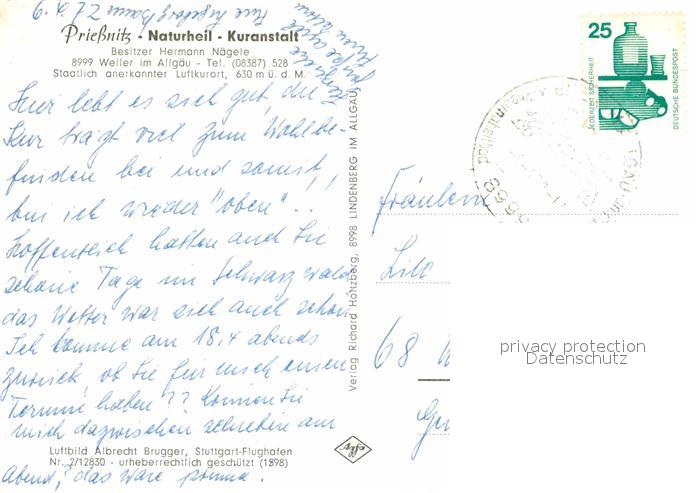 Prießnitz - Naturheil - Kuranstalt
Besitzer Hermann Nägele
8999 Weiler im Allgäu - Tel. (08387) 528
Staatlich anerkannter Luftkurort, 630 m ü. d. M.
Hier lebt es sich gut, die
Kur trägt viel zum Wohlbe-
finden bei und somit
bin ich wieder "oben"..
Hoffentlich hatten auch Sie
schöne Tage im Schwarzwald
das Wetter war sich auch schön
Ich komme am 18.4 abends
zurück, ob Sie für mich einen
Termin haben?? Können Sie
mich dazwischen schieben am
Abend, das wäre prima.
Luftbild Albrecht Brugger, Stuttgart-Flughafen
Nr. 2/12830 - urheberrechtlich geschützt (1598)
Verlag Richard Holtzberg, 8998 LINDENBERG IM ALLGÄU
Agfa
25
JEDERZEIT SICHERHEIT
DEUTSCHE BUNDESPOST
Fräulein
Lilo
68
privacy protection
Datenschutz